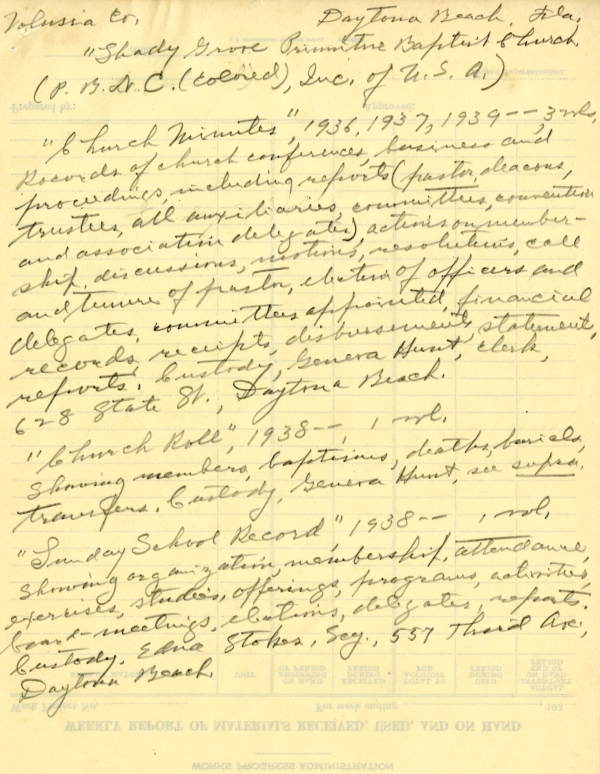 Volusia Co. Daytona Beach, Fla.
"Shady Grove Primitive Baptist Church
(P. B. N. C. (Colored), Inc. of U. S. A.)
"Church Minutes", 1936, 1937, 1939--, 3 vols.
Records of church conferences, business and
proceedings, including reports (pastor, deacons,
trustees, all auxiliaries, committees, convention
and association delegates) actions on member-
ship, discussions, motions, resolutions, call
and tenure of pastor, election of officers and
delegates, committees appointed, financial
records, receipts, disbursements, statements,
reports. Custody, Geneva Hunt, clerk,
628 State St., Daytona Beach.
"Church Roll", 1938--, 1 vol.
Showing members, baptisms, deaths, burials,
transfers. Custody, Geneva Hunt, see supra.
"Sunday School Record," 1938-- 1 vol.
Showing organization, membership, attendance,
exercises, studies, offerings, programs, activities,
board-meetings, elections, delegates, reports.
Custody, Edna Stokes, Scy., 557 Third Ave.,
Daytona Beach.
Work Project No. For week ending 193
WEEKLY REPORT OF MATERIALS RECEIVED, USED, AND ON HAND
WORKS PROGRESS ADMINISTRATION